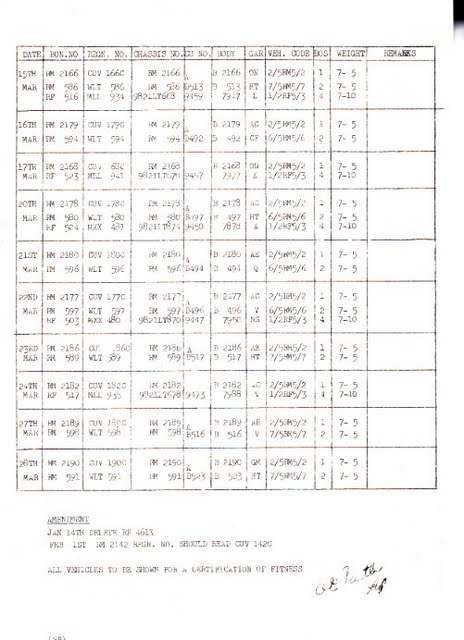 DATE BON.NO REGN. NO. CHASSIS NO. CU NO. BODY GAR VEH. CODE DOS WEIGHT REMARKS
15TH RM 2166 CUV 166C RM 2166 A B 2166 ON 2/5RM5/2 1 7- 5
MAR RM 586 WLT 586 RM 586 B513 B 513 HT 7/5RM5/7 2 7- 5
RF 516 MLL 934 9821LT663 9459 7917 L 1/2RF5/3 4 7-10
16TH RM 2179 CUV 179C RM 2179 A B 2179 AC 2/5RM5/2 1 7- 5
MAR RM 594 WLT 594 RM 594 B492 B 492 CF 6/5RM5/6 2 7- 5
17TH RM 2168 CUV 168C RM 2168 A B 2168 ON 2/5RM5/2 1 7- 5
MAR RF 523 MLL 941 9821LT670 9457 1/2RF5/3 4 7-10
20TH RM 2178 CUV 178C RM 2178 A B 2178 AC 2/5RM5/2 1 7- 5
MAR RM 580 WLT 580 RM 580 B497 B 497 HT 6/5RM5/6 2 7- 5
RF 504 MXX 481 9821LT874 9450 7878 A 1/2RF5/3 4 7-10
21ST RM 2180 CUV 180C RM 2180 A B 2180 AE 2/5RM5/2 1 7- 5
MAR RM 596 WLT 596 RM 596 B494 B 494 Q 6/5RM5/6 2 7- 5
22ND RM 2177 CUV 177C RM 2177 A B 2177 AC 2/5RM5/2 1 7- 5
MAR RM 597 WLT 597 RM 597 B496 B 496 V 6/5RM5/6 2 7- 5
RF 503 MXX 480 9821LT870 9447 7950 NS 1/2RF5/3 4 7-10
23RD RM 2186 CUV 186C RM 2186 A B 2186 AE 2/5RM5/2 1 7- 5
MAR RM 589 WLT 589 RM 589 B517 B 517 HT 7/5RM5/7 2 7- 5
24TH RM 2182 CUV 182C RM 2182 A B 2182 AC 2/5RM5/2 1 7- 5
MAR RF 517 MLL 935 9821LT678 9473 7988 V 1/2RF5/3 4 7-10
27TH RM 2189 CUV 189C RM 2189 A B 2189 AE 2/5RM5/2 1 7- 5
MAR RM 598 WLT 598 RM 598 B516 B 516 V 7/5RM5/7 2 7- 5
28TH RM 2190 CUV 190C RM 2190 A B 2190 GM 2/5RM5/2 1 7- 5
MAR RM 591 WLT 591 RM 591 B523 B 523 HT 7/5RM5/7 2 7- 5
AMENDMENT
JAN 14TH DELETE RF 461X
FEB 1ST RM 2142 REGN. NO. SHOULD READ CUV 142C
ALL VEHICLES TO BE SHOWN FOR A CERTIFICATION OF FITNESS